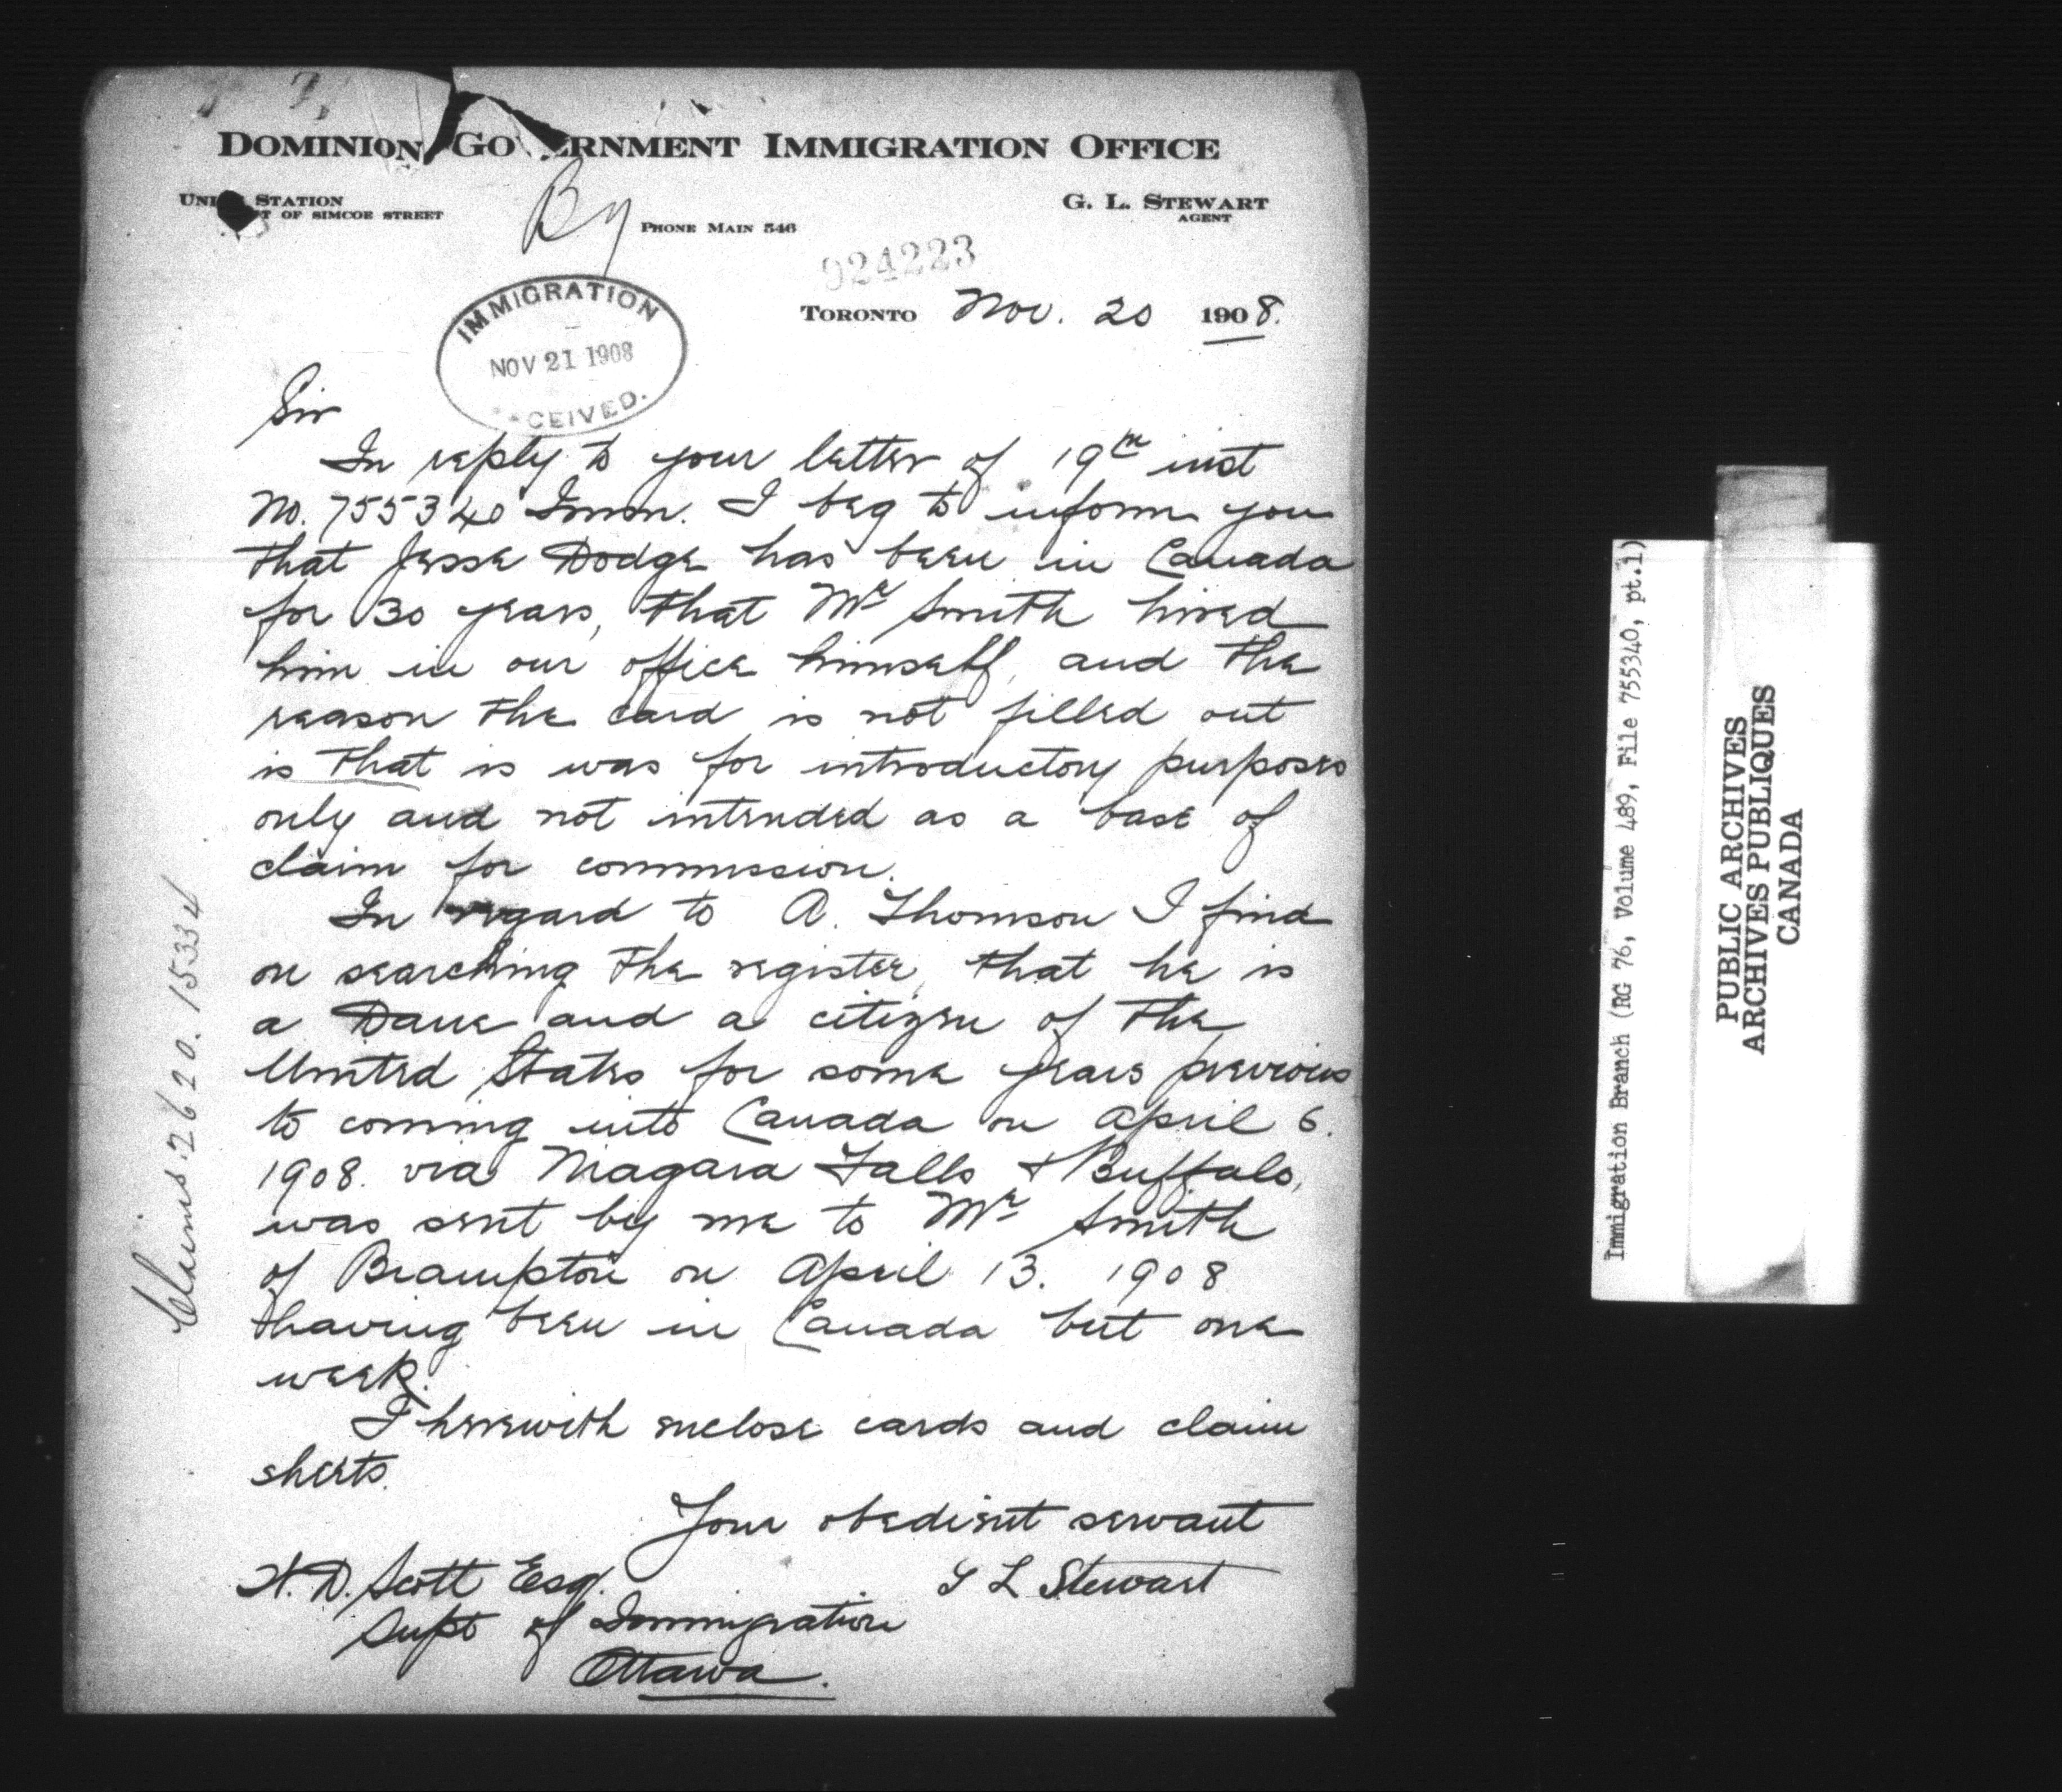 DOMINION GOVERNMENT IMMIGRATION OFFICE
UNION STATION
T OF SIMCOE STREET
By
PHONE MAIN 546
G. L. STEWART
AGENT
924223
TORONTO Nov. 20 1908.
IMMIGRATION
NOV 21 1908
CEIVED.
Sir
In reply to your letter of 19th inst
No. 755340 Immn. I beg to inform you
that Jesse Dodge has been in Canada
for 30 years, that Mr Smith hired
him in our office himself, and the
reason the card is not filled out
is that is was for introductory purposes
only and not intended as a base of
claim for commission.
In regard to A. Thomson I find
on searching the register, that he is
a Dane and a citizen of the
United States for some years previous
to coming into Canada on April 6.
1908. via Niagara Falls & Buffalo,
was sent by me to Mr Smith
of Brampton on April 13. 1908
having been in Canada but one
week.
I herewith enclose cards and claim
sheets.
Your obedient servant
G L Stewart
W. D. Scott Esq.
Supt of Immigration
Ottawa.
Claims. 2620. 15334
Immigration Branch (RG 76, Volume 489, File 755340, pt.1)
PUBLIC ARCHIVES
ARCHIVES PUBLIQUES
CANADA